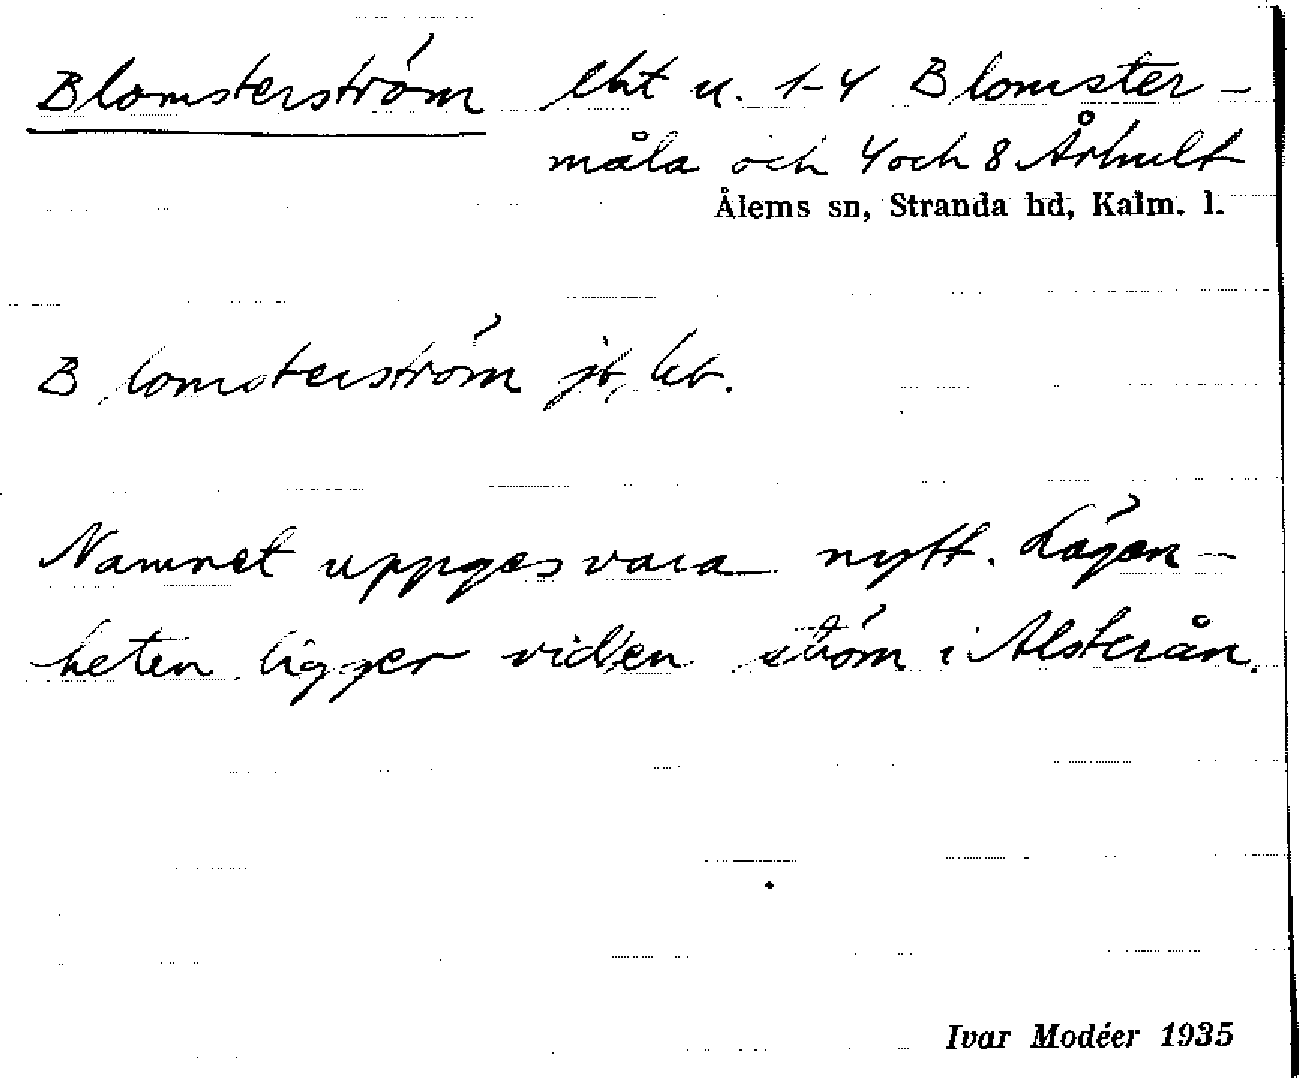 Blomsterström lht u. 1-4 Blomster-
måla och 4 och 8 Århult
Ålems sn, Stranda hd, Kalm. l.
Blomsterström jb, kb.
Namnet uppges vara nytt. Lägen-
heten ligger vid en ström i Alsterån.
Ivar Modéer 1935